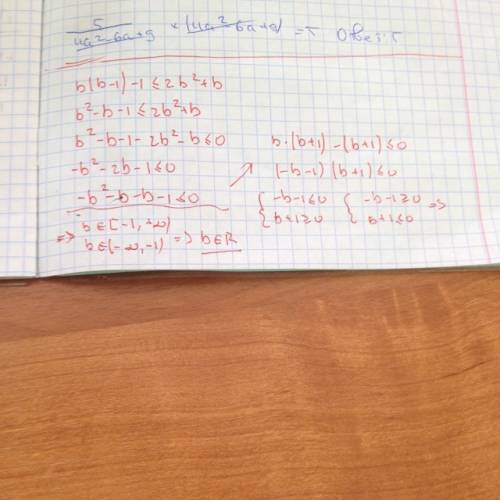 5/(4a²-6a+9) × (4a²-6a+9) = 5 Ответ: 5
b(b-1)-1 ≤ 2b²+b
b²-b-1 ≤ 2b²+b
b²-b-1-2b²-b ≤ 0
-b²-2b-1 ≤ 0
-b²-b-b-1 ≤ 0
b·(b+1)-(b+1) ≤ 0
(-b-1)(b+1) ≤ 0
{ -b-1 ≤ 0 { -b-1 ≥ 0 =>
{ b+1 ≥ 0 { b+1 ≤ 0
=> b∈[-1,+∞)
b∈(-∞,-1) => b∈R